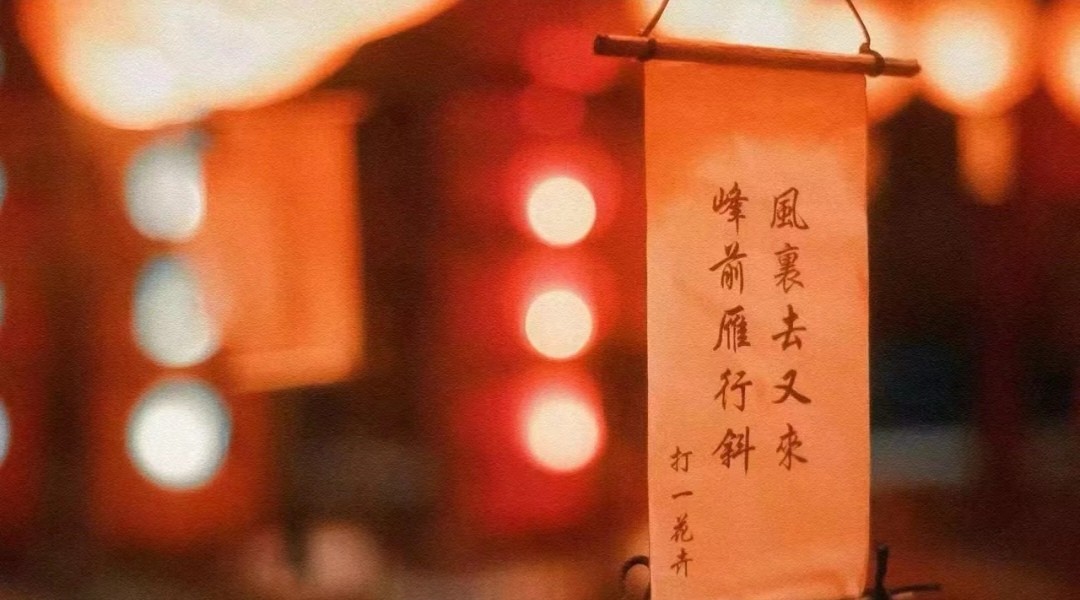 風裏去又來
峰前雁行斜
打一花卉